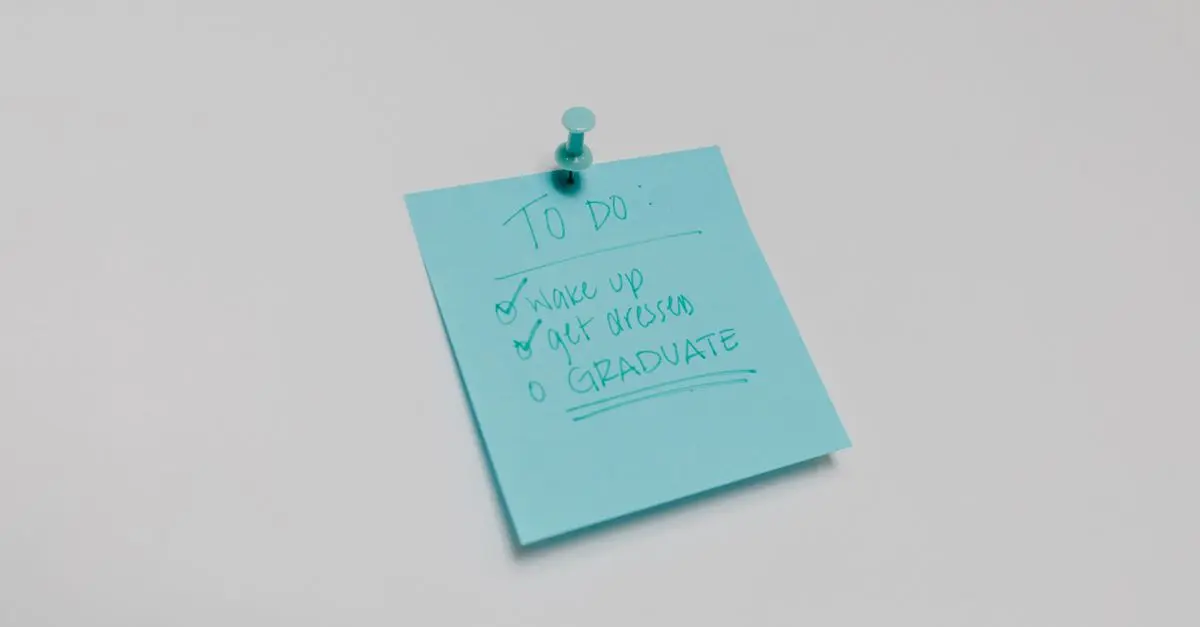 TO DO:
wake up
get dressed
GRADUATE